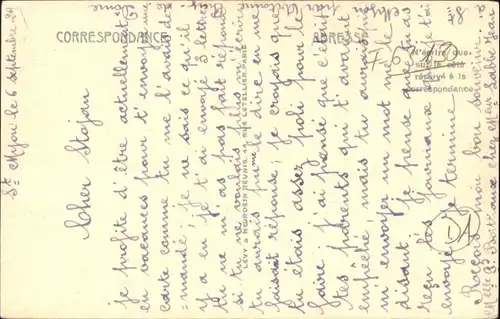 St Myon le 6 septembre 29
Cher Stojan
je profite d'être actuellement
en vacances pour t'envoyer une
carte comme tu me l'avais de-
-mandé; je ne sais ce qu'il
y a eu je t'ai envoyé 3 lettres
tu ne m'as pas fait réponse
si tu ne voulais plus m'écrire
tu aurais pu me le dire en me
faisant réponse; je croyais que
tu étais assez poli pour le
faire j'ai pensé que c'était
tes parents qui t'avaient
empêché mais tu aurais pu
m'envoyer un mot me le
disant, je pense que tu as
reçu les journaux que je t'ai
envoyé je termine
bon souvenir
CORRESPONDANCE
ADRESSE
N'écrire que
sur le côté
réservé à la
correspondance
LÉVY & NEURDEIN RÉUNIS, 44, RUE LETELLIER, PARIS